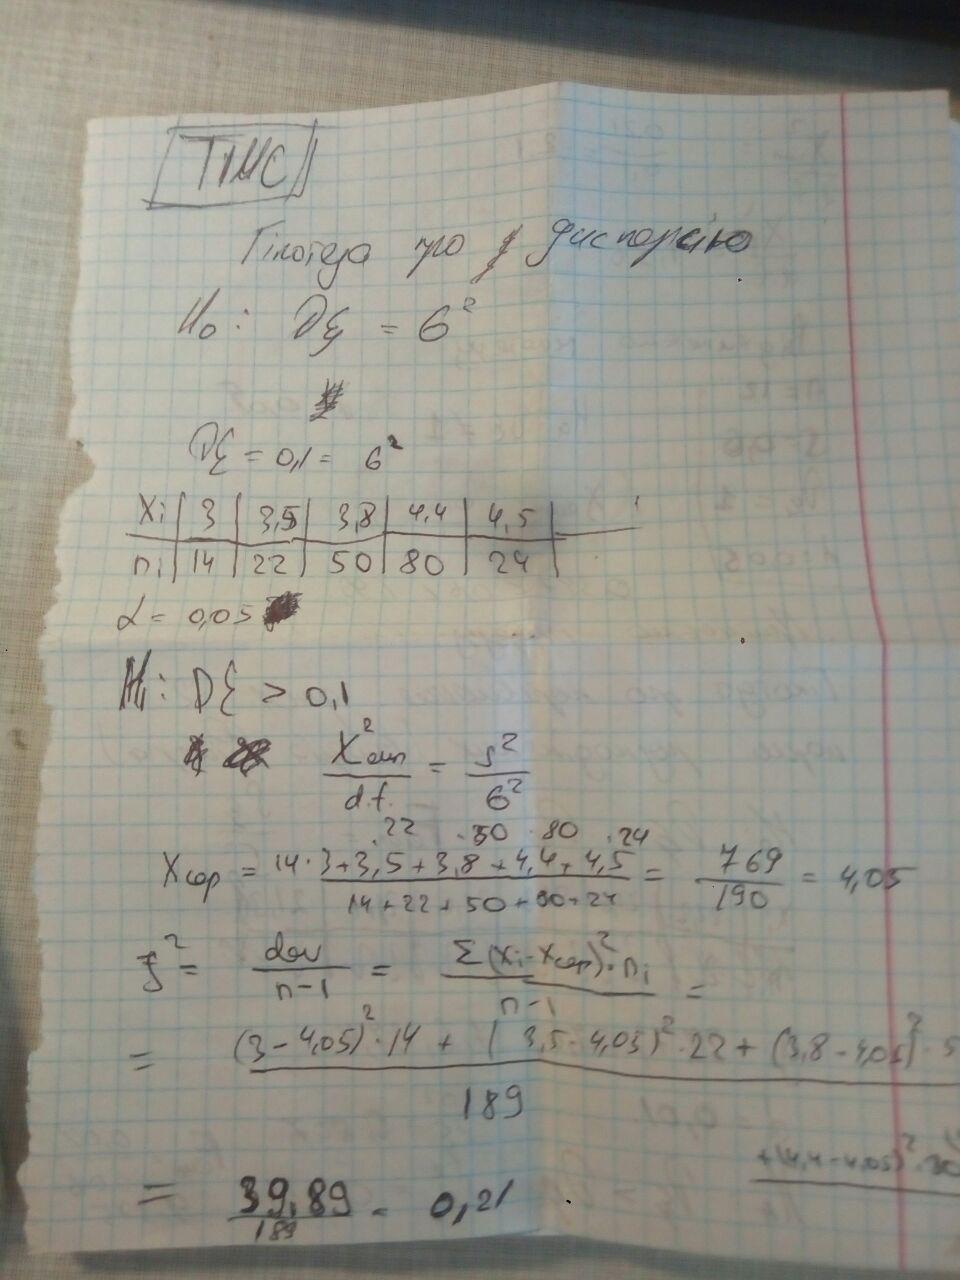 ТІМС
Гіпотеза про дисперсію
H₀: Dξ = б²
Dξ = 0,1 = б²
Xi | 3 | 3,5 | 3,8 | 4,4 | 4,5
ni | 14 | 22 | 50 | 80 | 24
α = 0,05
H₁: Dξ > 0,1
X²емп / d.f. = s² / б²
·22 ·50 ·80 ·24
Xсер = 14·3+3,5+3,8+4,4+4,5 / 14+22+50+80+24 = 769 / 190 = 4,05
s² = dev / n-1 = Σ(xi-xсер)²·ni / n-1 =
= (3-4,05)²·14 + (3,5-4,05)²·22 + (3,8-4,05)²·5
189
+(4,4-4,05)²·80
= 39,89 / 189 = 0,21